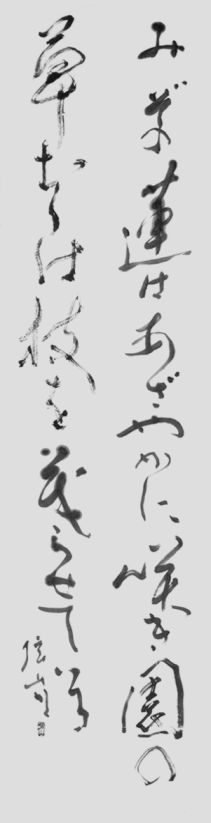 蓮はあざやかに咲き園の
草むらは枝を茂らせて いる